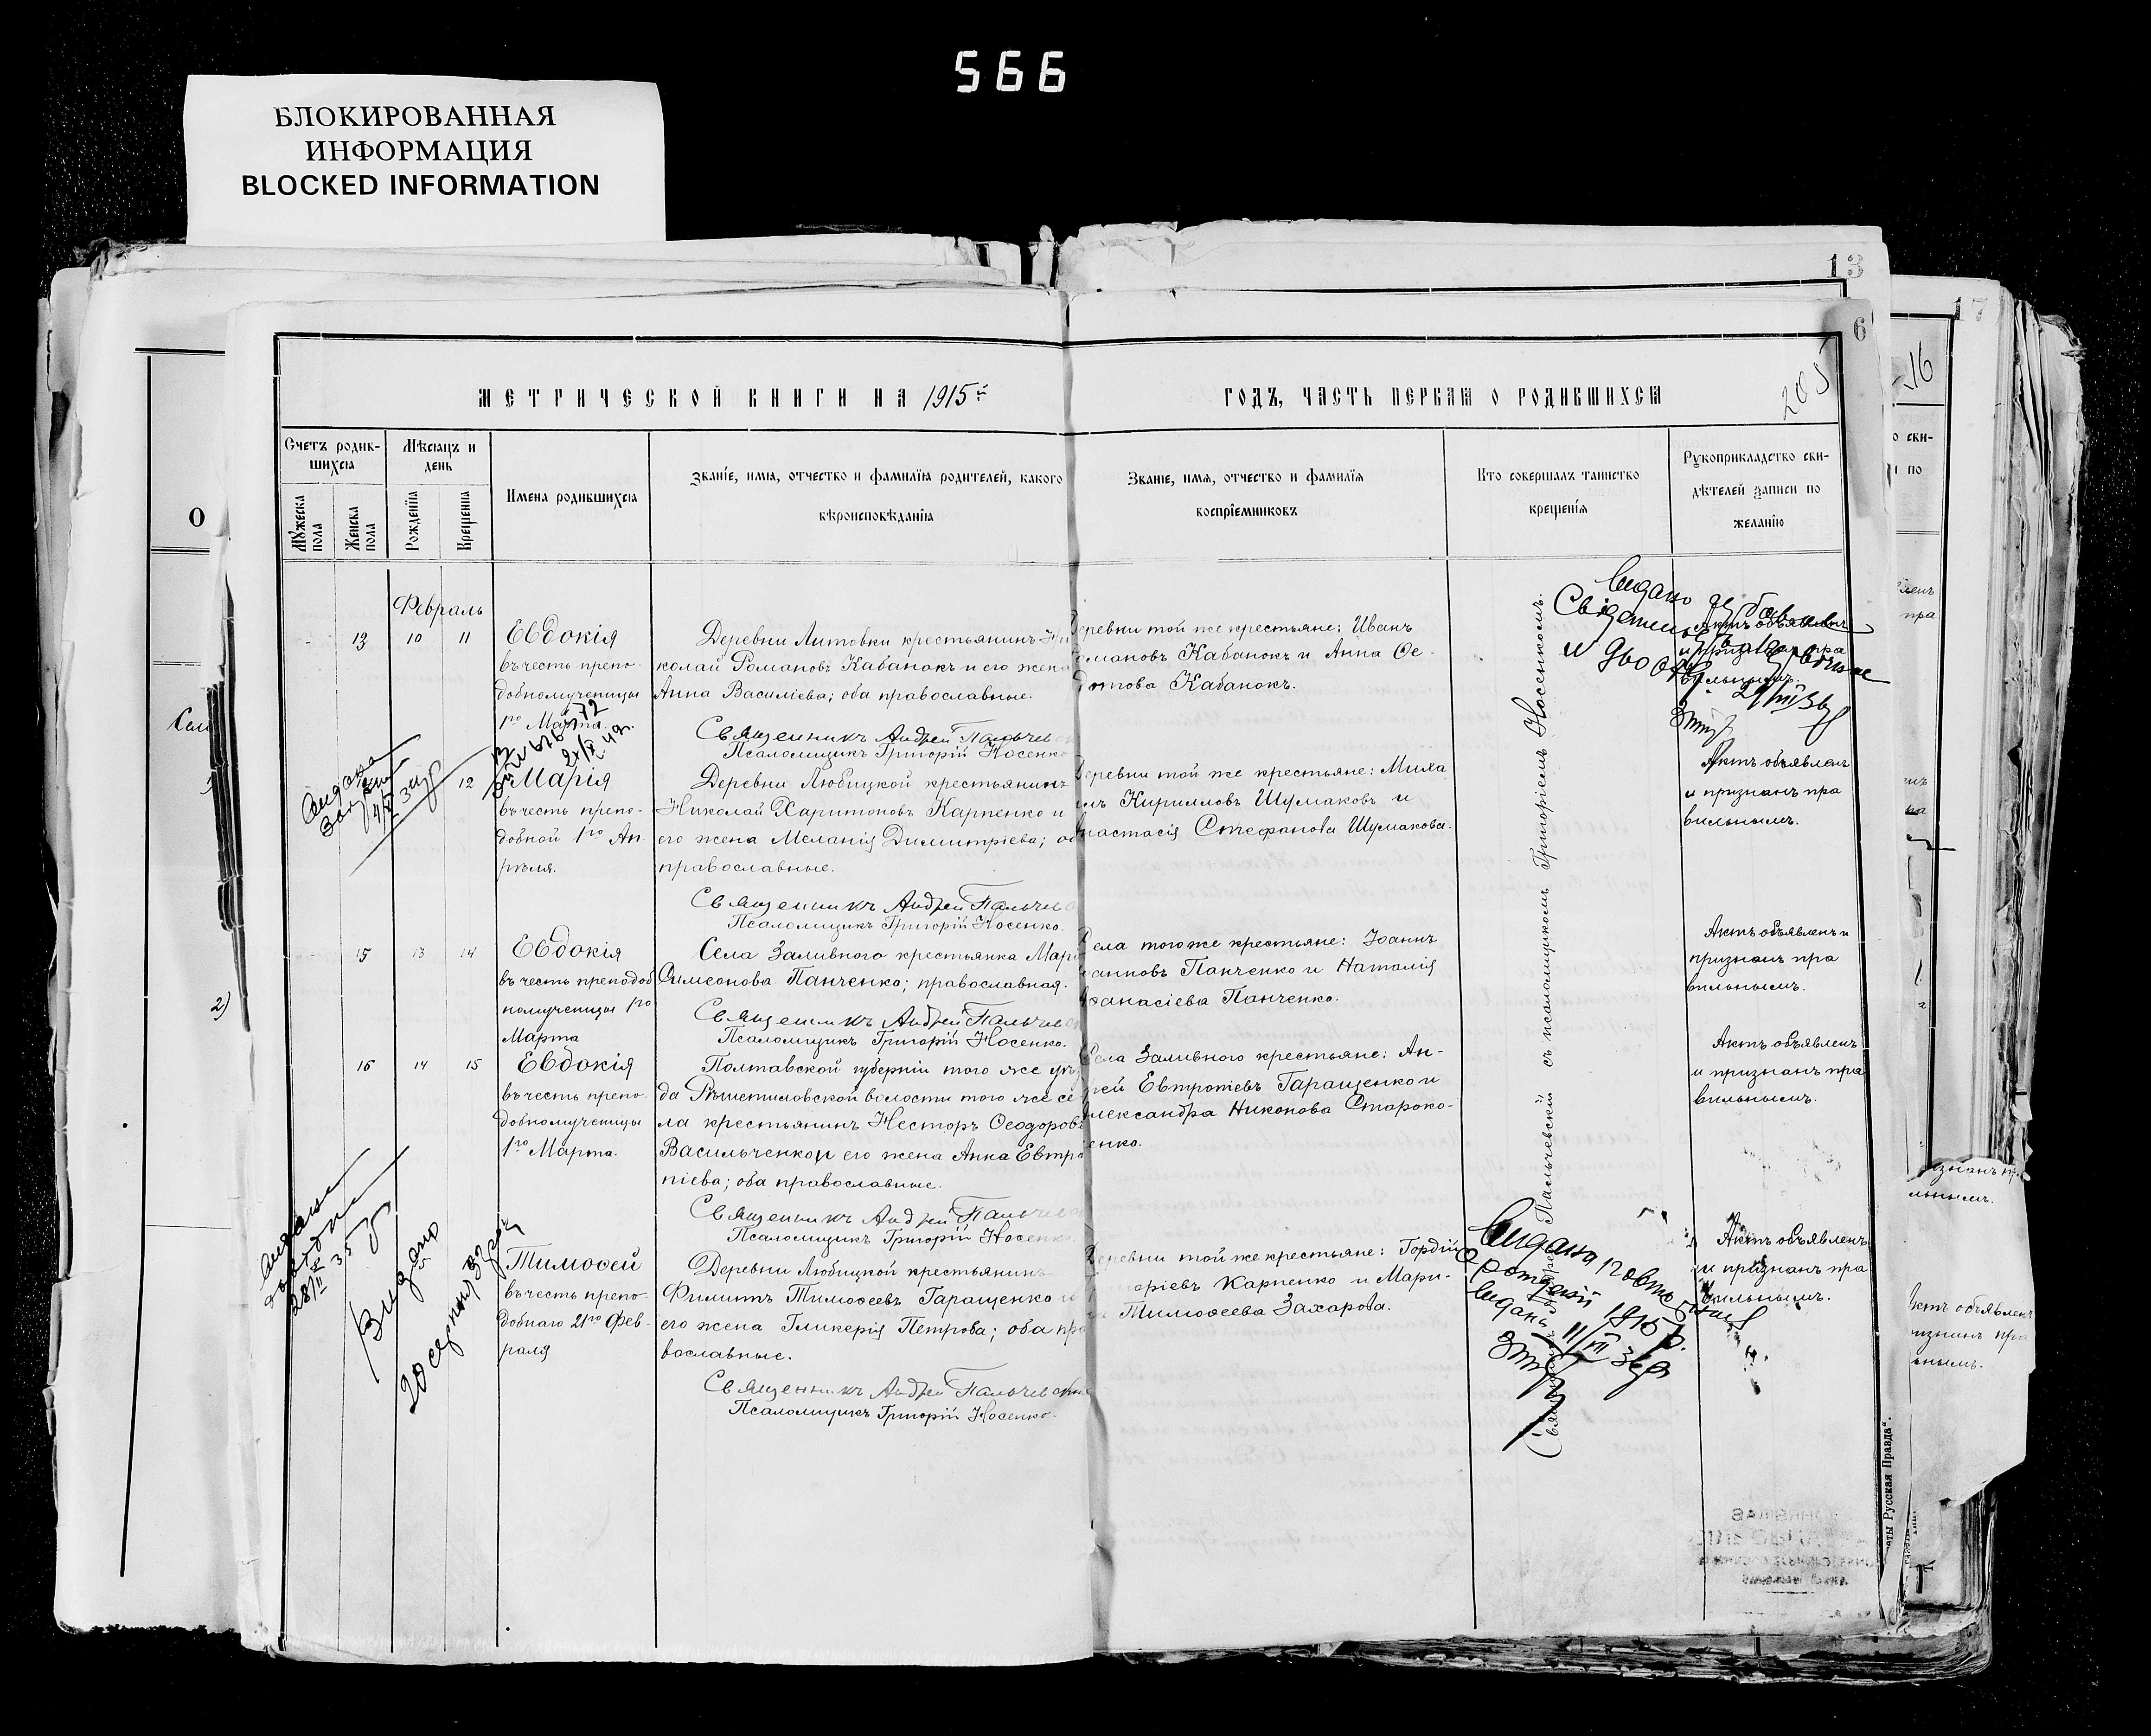 566
БЛОКИРОВАННАЯ
ИНФОРМАЦИЯ
BLOCKED INFORMATION
13
17
6
16
205
МЕТРИЧЕСКОЙ КНИГИ НА 1915й
ГОДЪ, ЧАСТЬ ПЕРВАЯ О РОДИВШИХСЯ
Счетъ родив-
шихся
Мѣсяцъ и
день
Мужеска пола
Женска пола
Рожденія
Крещенія
Имена родившихся
Званіе, имя, отчество и фамилія родителей, какого
вѣроисповѣданія
Званіе, имя, отчество и фамилія
воспріемниковъ
Кто совершалъ таинство
крещенія
Рукоприкладство сви-
дѣтелей записи по
желанію
Февраль
13 10 11
Евдокія
въ честь препо-
добномученицы
1го Марта.
Деревни Литовки крестьянинъ Ни
колай Романовъ Кабанокъ и его жена
Анна Василіева; оба православные.
Священникъ Андрей Пальчев
Псаломщикъ Григорій Носенко
Деревни той же крестьяне: Иванъ
Романовъ Кабанокъ и Анна Ѳе-
дотова Кабанокъ.
Актъ объявленъ
и признанъ пра
вильнымъ.
12
Марія
въ честь препо-
добной 1го Ап
рѣля.
Деревни Любицкой крестьянинъ
Николай Харитоновъ Карпенко и
его жена Меланія Димитріева; об
православные.
Священникъ Андрей Пальчев
Псаломщикъ Григорій Носенко.
Деревни той же крестьяне: Миха
илъ Кирилловъ Шумаковъ и
Анастасія Стефанова Шумакова.
Актъ объявленъ
и признанъ пра
вильнымъ.
15 13 14
Евдокія
въ честь преподоб
номученицы 1го
Марта
Села Заливного крестьянка Марі
Симеонова Панченко; православная.
Священникъ Андрей Пальчев
Псаломщикъ Григорій Носенко.
Села того же крестьяне: Іоаннъ
Іоанновъ Панченко и Наталія
Аѳанасіева Панченко.
Актъ объявленъ и
признанъ пра
вильнымъ.
16 14 15
Евдокія
въ честь препо-
добномученицы
1го Марта.
Полтавской губерніи того же уѣз
да Рѣшетиловской волости того же се
ла крестьянинъ Несторъ Ѳеодоровъ
Васильченко и его жена Анна Евтро
піева; оба православные.
Священникъ Андрей Пальчев
Псаломщикъ Григорій Носенко.
Села Заливного крестьяне: Ан-
дрей Евтропіевъ Гаращенко и
Александра Никонова Староко-
Актъ объявленъ
и признанъ пра
вильнымъ.
Тимоѳей
въ честь препо-
добнаго 21го Фев-
раля
Деревни Любицкой крестьянинъ
Филиппъ Тимоѳеевъ Гаращенко и
его жена Гликерія Петрова; оба пра
вославные.
Священникъ Андрей Пальчевскій
Псаломщикъ Григорій Носенко.
Деревни той же крестьяне: Гордій
Карпенко и Мари-
Тимоѳеева Захарова.
Актъ объявленъ
и признанъ пра
вильнымъ.
Священникъ Андрей Пальчевскій съ псаломщикомъ Григоріемъ Носенкомъ.
Видано
20 серпня 32 рок
Видано
11/III 36